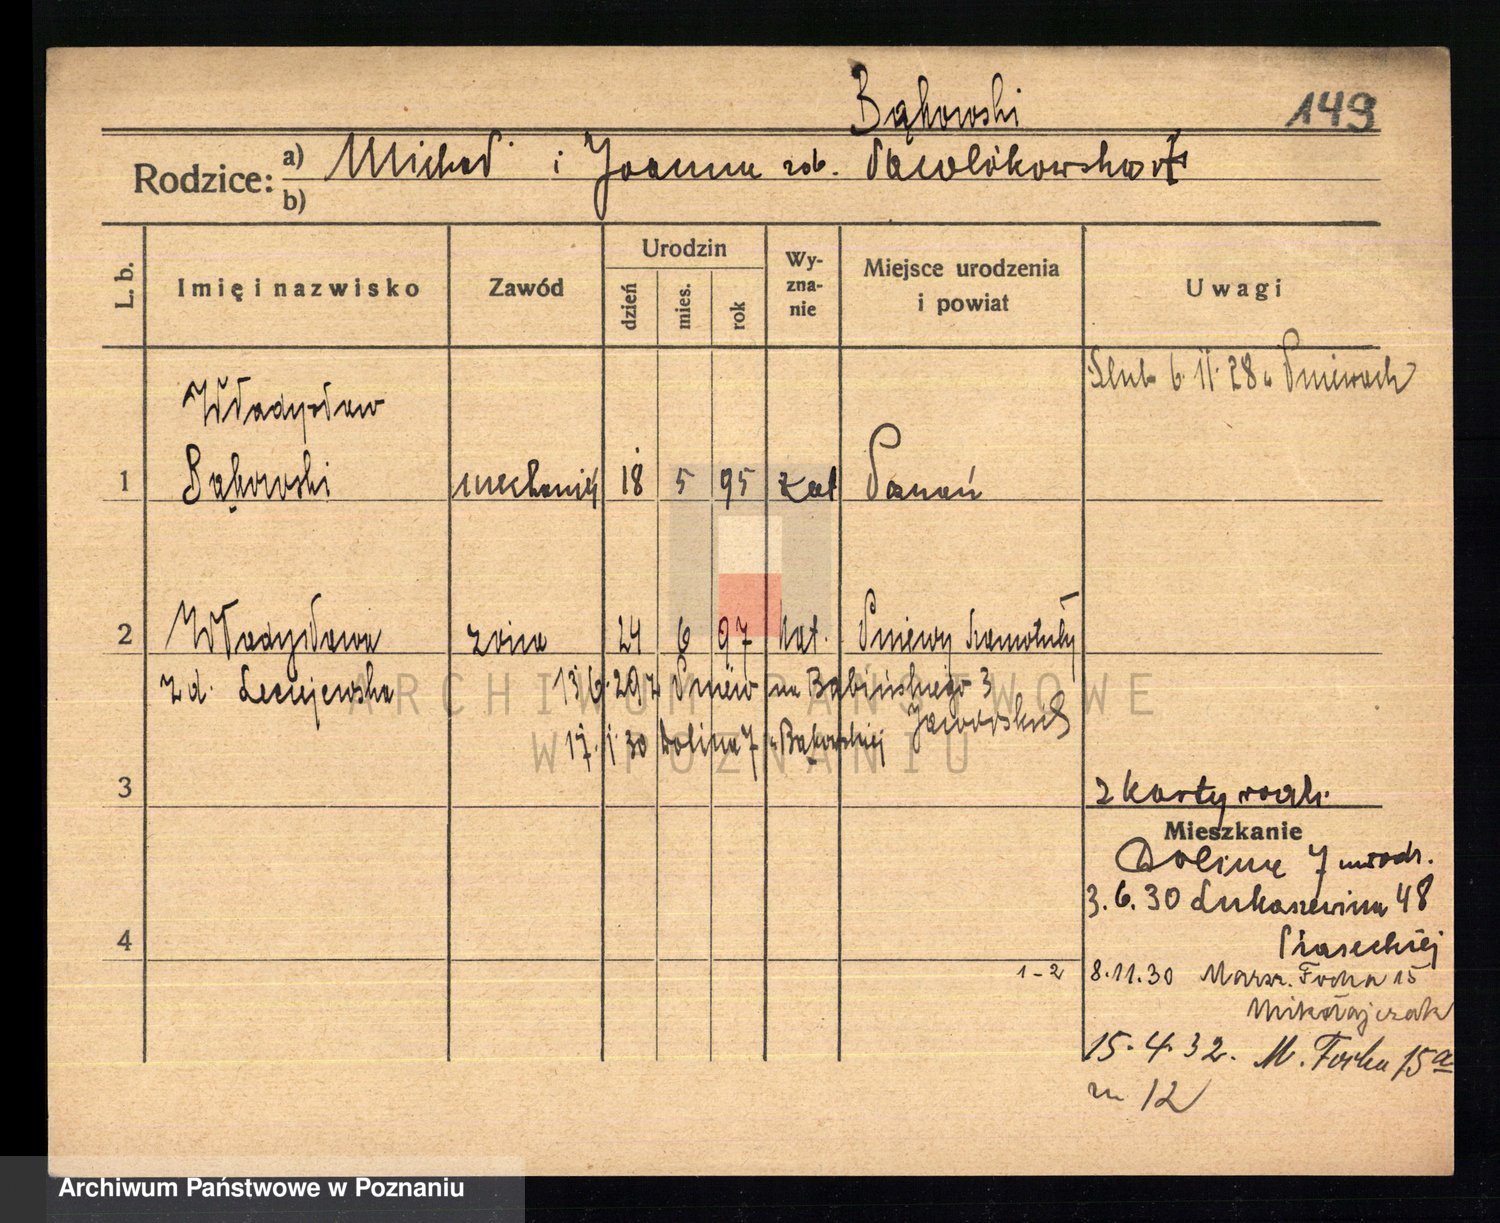 Bąkowski 149
Rodzice: a) Michał i Joanna zd.
b)
L. b. Imię i nazwisko Zawód Urodzin dzień mies. rok Wyznanie Miejsce urodzenia i powiat Uwagi
Ślub 6.11.28 w Pniewach
Władysław
1 Bąkowski mechanik 18 5 95 kat Poznań
2 Władysława żona 24 6 97 kat. Pniewy Szamotuły
zd. 13.6.29 z Pniew na Bąbińskiego 3
17.1.30 Dolina 7 Bąkowskiej
3 z karty rodz.
Mieszkanie
Dolina 7 u rodz.
3.6.30 Łukaszewicza 48
4 Piaseckiej
1-2 8.11.30 Marsz. Focha 15
Mikołajczak
15.4.32. M. Focha 15a
m 12
ARCHIWUM PAŃSTWOWE
W POZNANIU
Archiwum Państwowe w Poznaniu